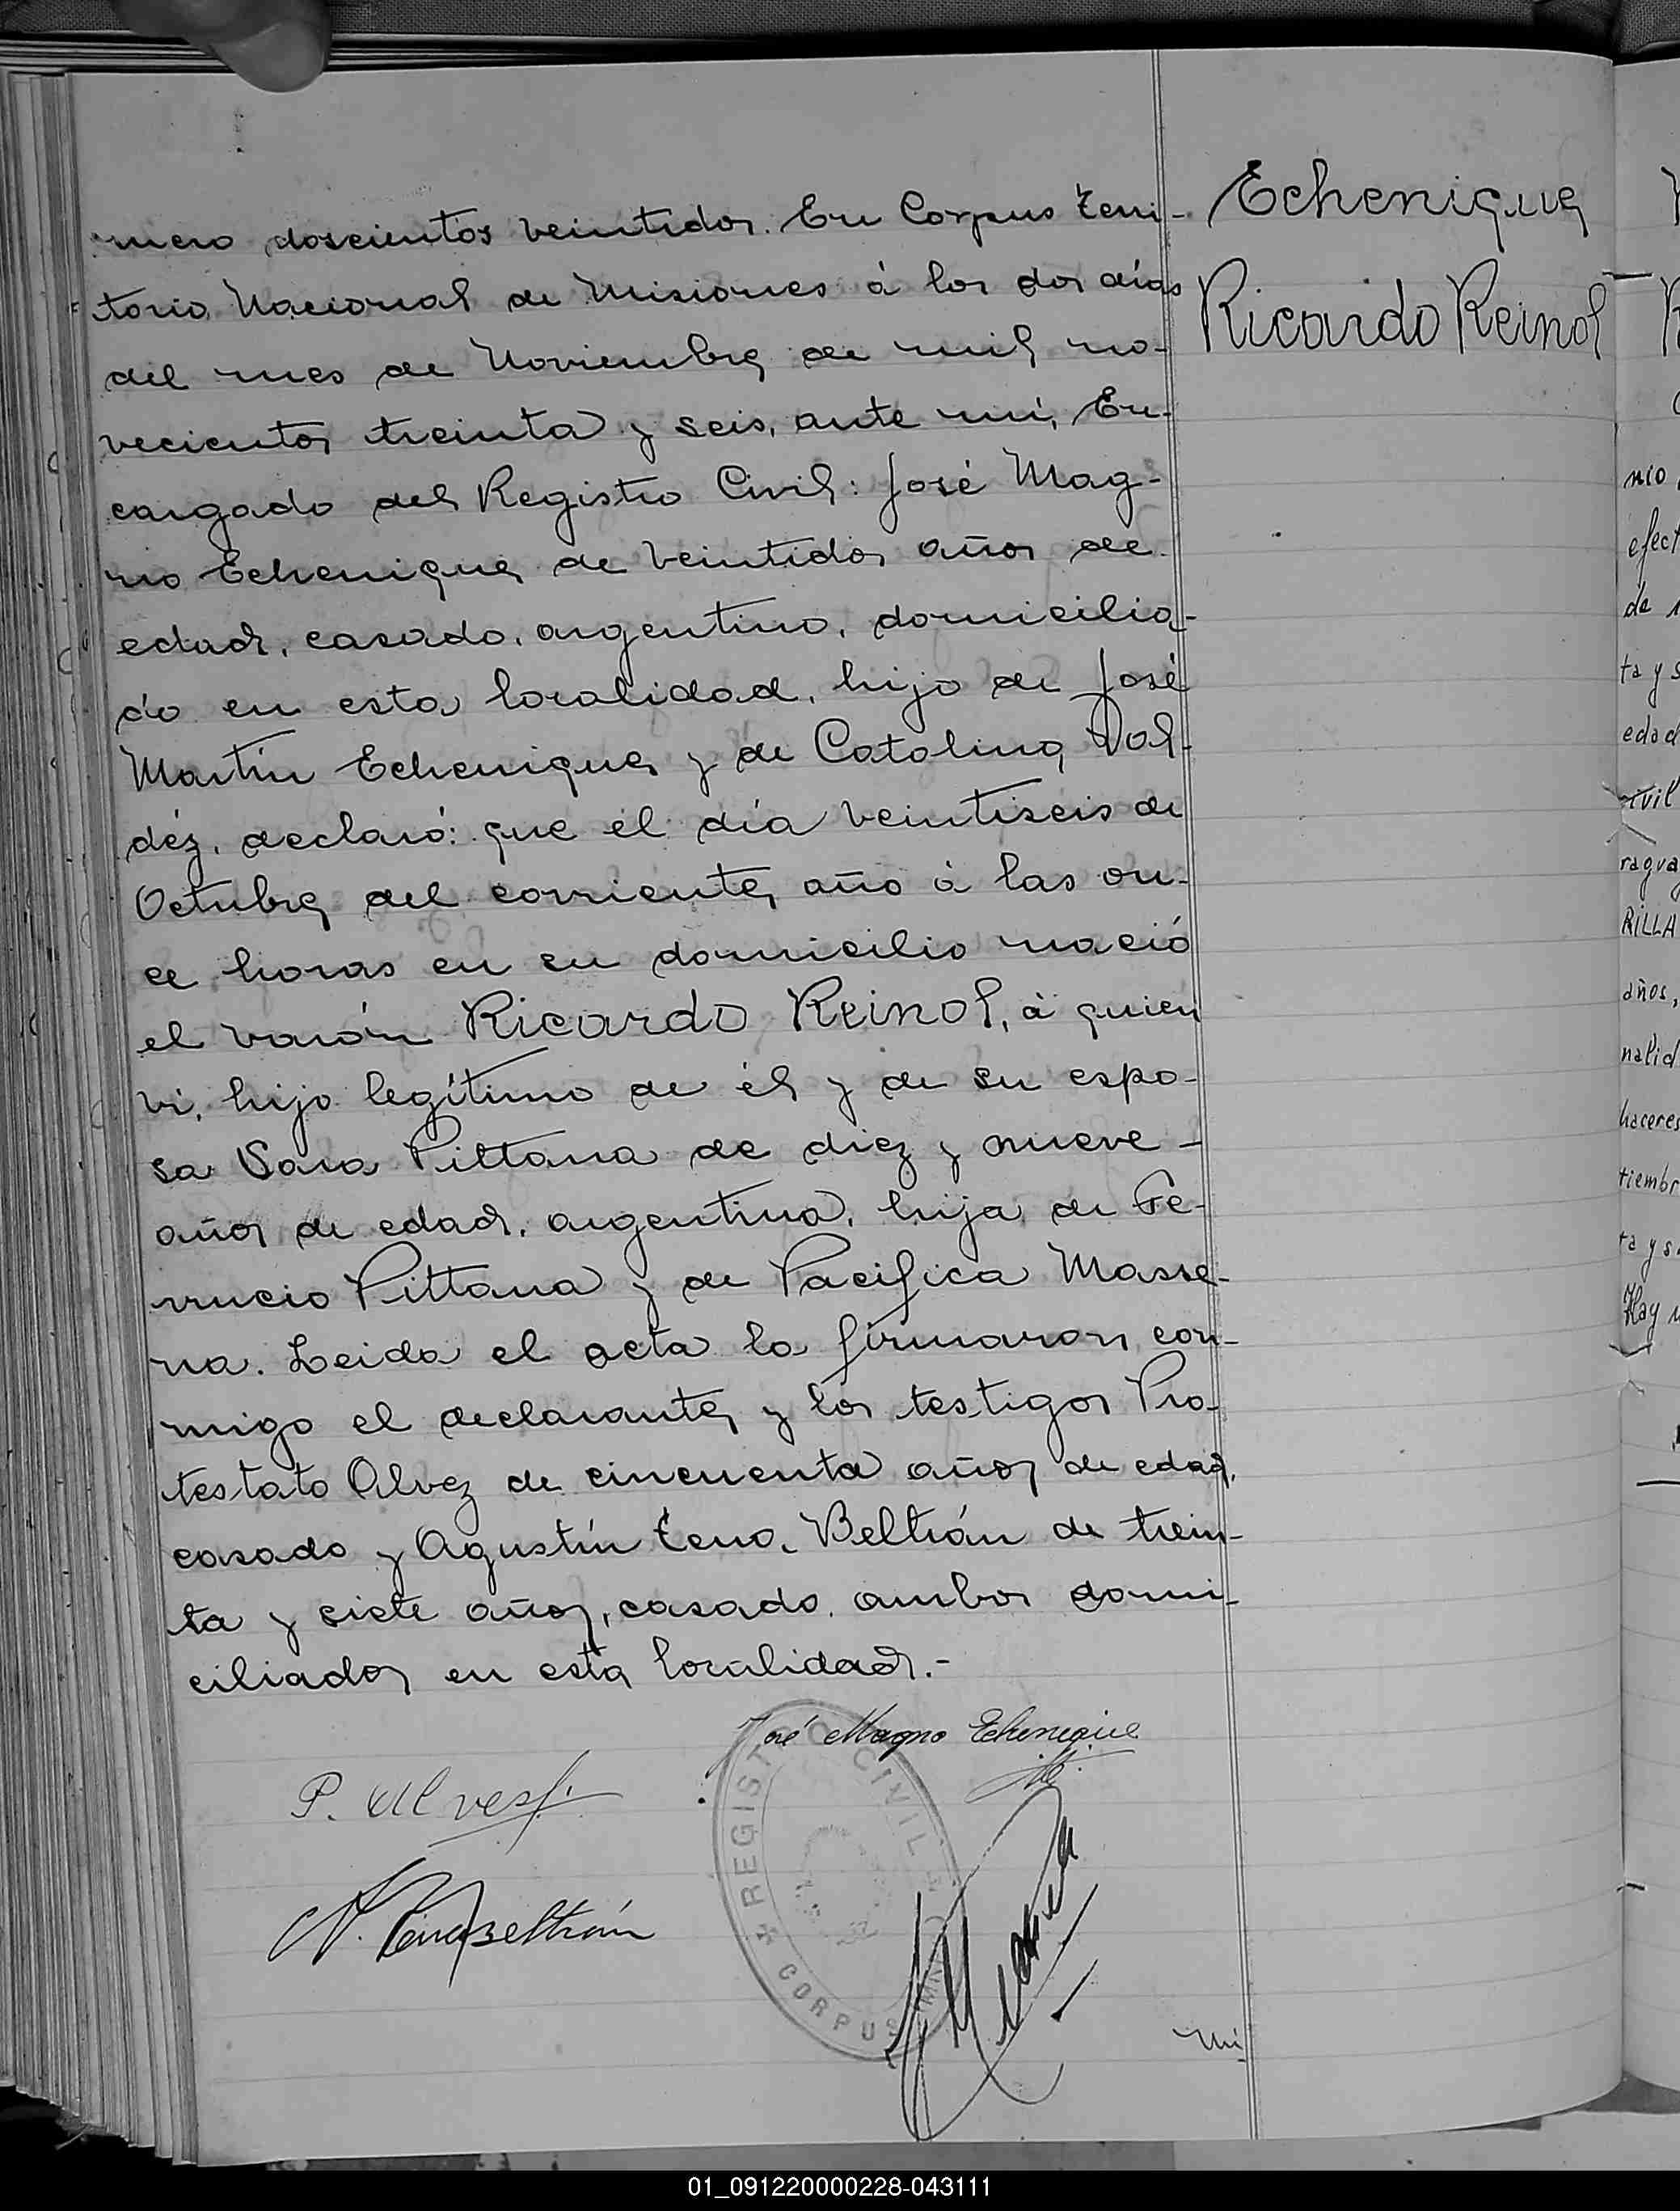 mero doscientos veintidos. En Corpus Terri-
torio Nacional de Misiones á los dos días
del mes de Noviembre de mil no-
vecientos treinta y seis, ante mí, En-
cargado del Registro Civil: José Mag-
no Echenique de veintidos años de
edad, casado, argentino, domicilia-
do en esta localidad, hijo de José
Martín Echenique y de Catalina Val-
déz, declaró: que el día veintiseis de
Octubre del corriente año á las on-
ce horas en su domicilio nació
el varón Ricardo Reinol, á quien
vi, hijo legítimo de él y de su espo-
sa Sara Pittana de diez y nueve -
años de edad, argentina, hija de Fe-
rrucio Pittana y de Pacifica Masse-
na. Leida el acta la firmaron con-
migo el declarante y los testigos Pro-
testato Alvez de cincuenta años de edad,
casado y Agustín Beltrán de trein-
ta y siete años, casado, ambos domi-
ciliados en esta localidad.-
José Magno Echenique
P. Alves
Beltrán
REGISTRO CIVIL
CORPUS
Echenique
Ricardo Reinol
nio,
efect
de
ta y s
edad
civil
ragua
RILLA
años,
nalid
haceres
tiembr
ta y s
Hay
01_091220000228-043111